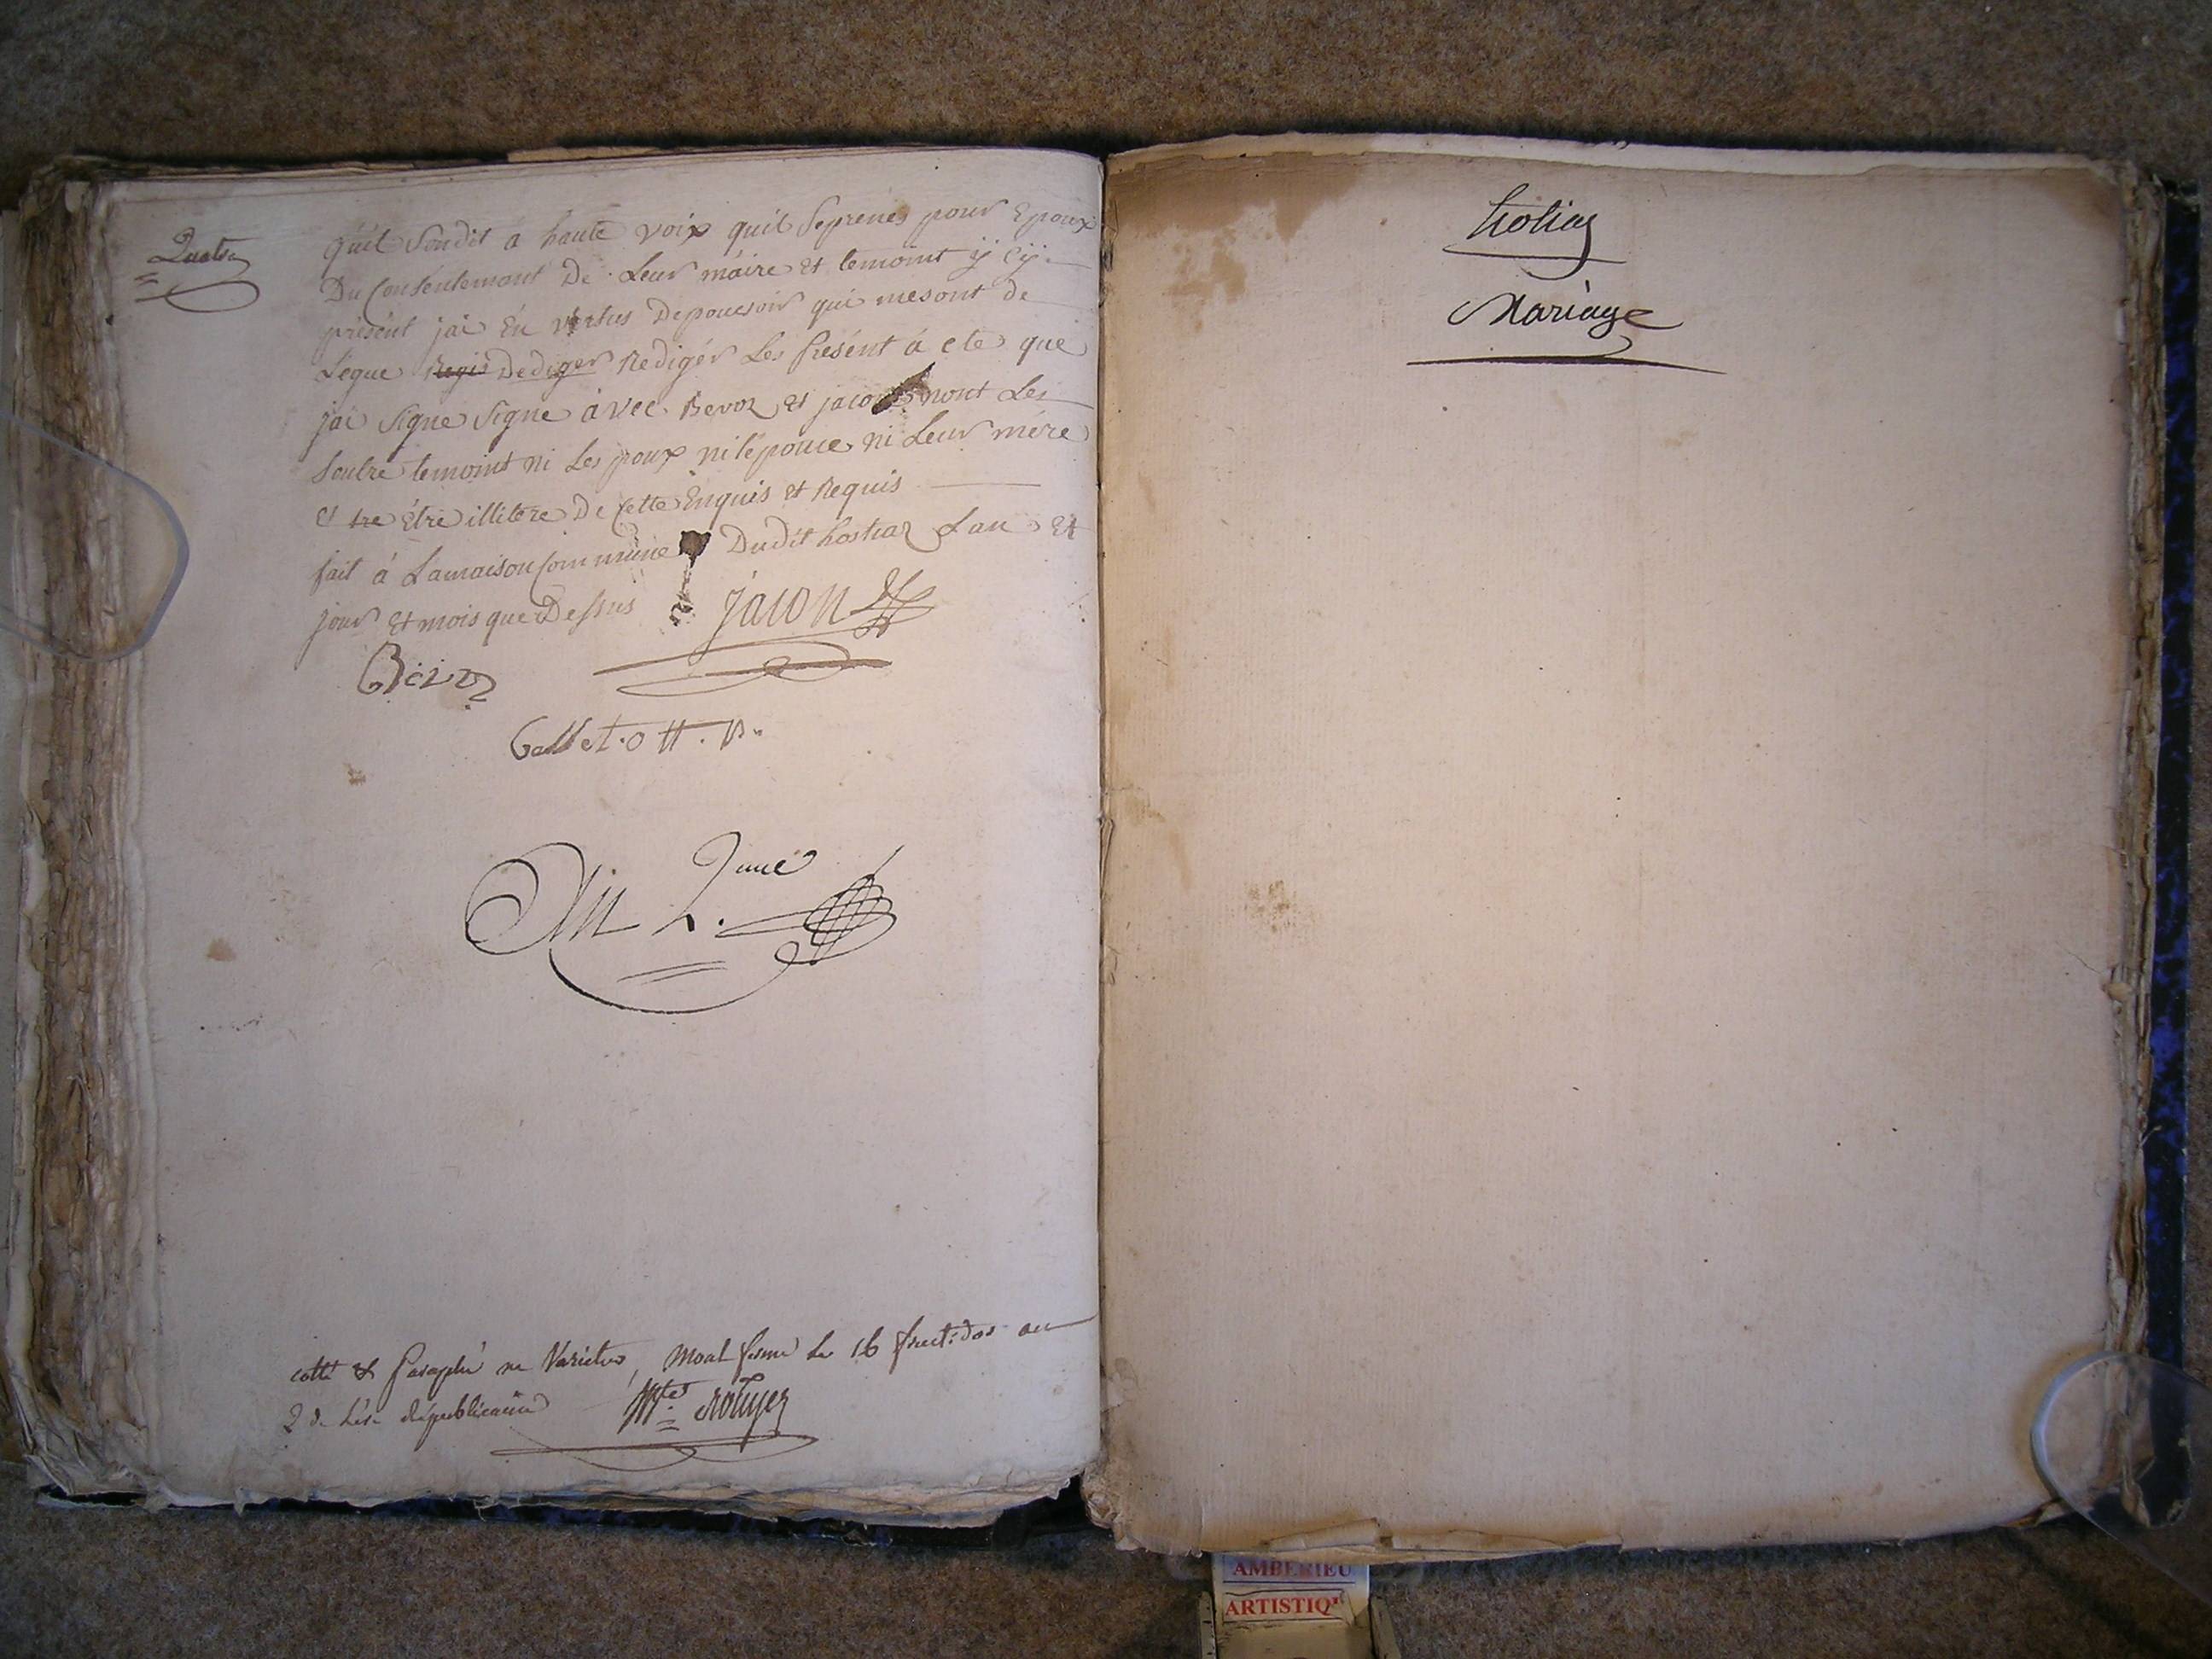 Quatre
quil Sondit a haute voix quil Seprenes pour Epoux
Du Consentemant De Leur maire et temoint ÿ Cÿ
présent jai En Vertus Depouesoir qui mesont de
Légue Regis Dediger Redigér Les present á cte que
jai Signe Signe àvec Bevoz et jacon nont Les
Soutre temoint ni Les poux ni lépouce ni Leur mére
et tre Étre illitére De Cette Enquis et Requis
fait á Lamaison Commune Dudit hostiaz Lan Et
jour Et mois que Dessus jacon
Gallet. o tt. p.
Juue
cotté & Paraphé ne Varietur, Montferme le 16 fructidor an
2 de L'ére Républicaine
Mariage
AMBERIEU
ARTISTIQ